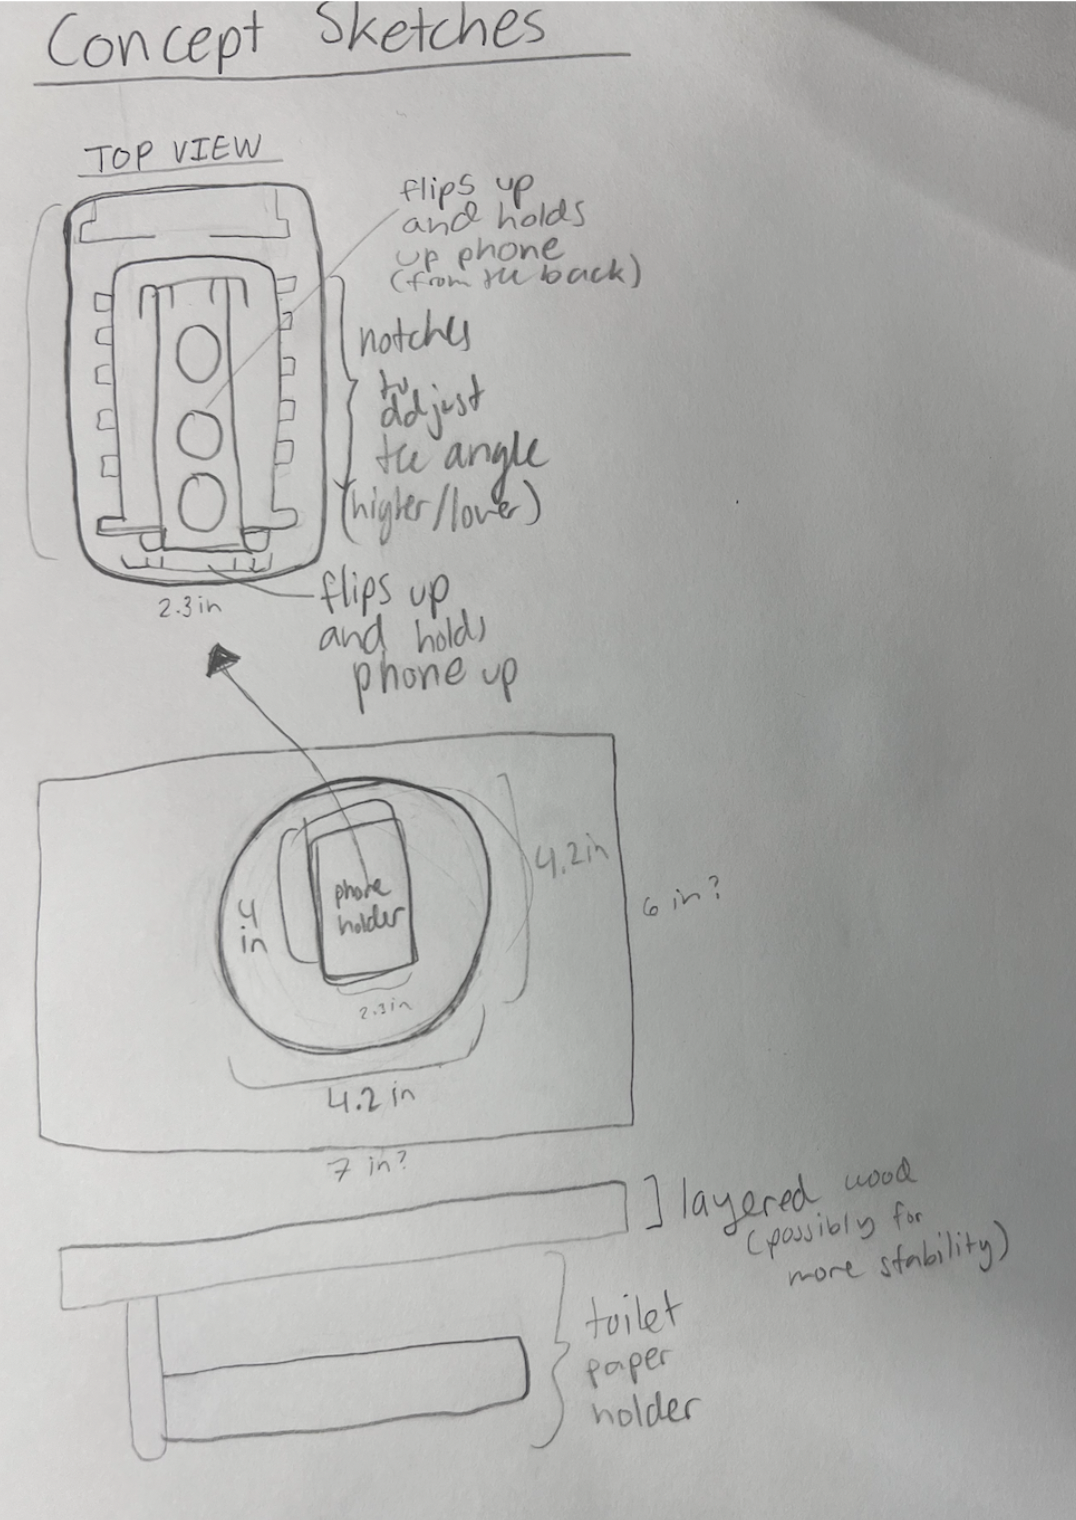 Concept Sketches
TOP VIEW
flips up
and holds
up phone
(from the back)
notches
to
adjust
the angle
(higher/lower)
2.3in
flips up
and holds
phone up
phone
holder
4
in
2.3in
4.2in
4.2 in
6 in?
7 in?
layered wood
(possibly for
more stability)
toilet
paper
holder